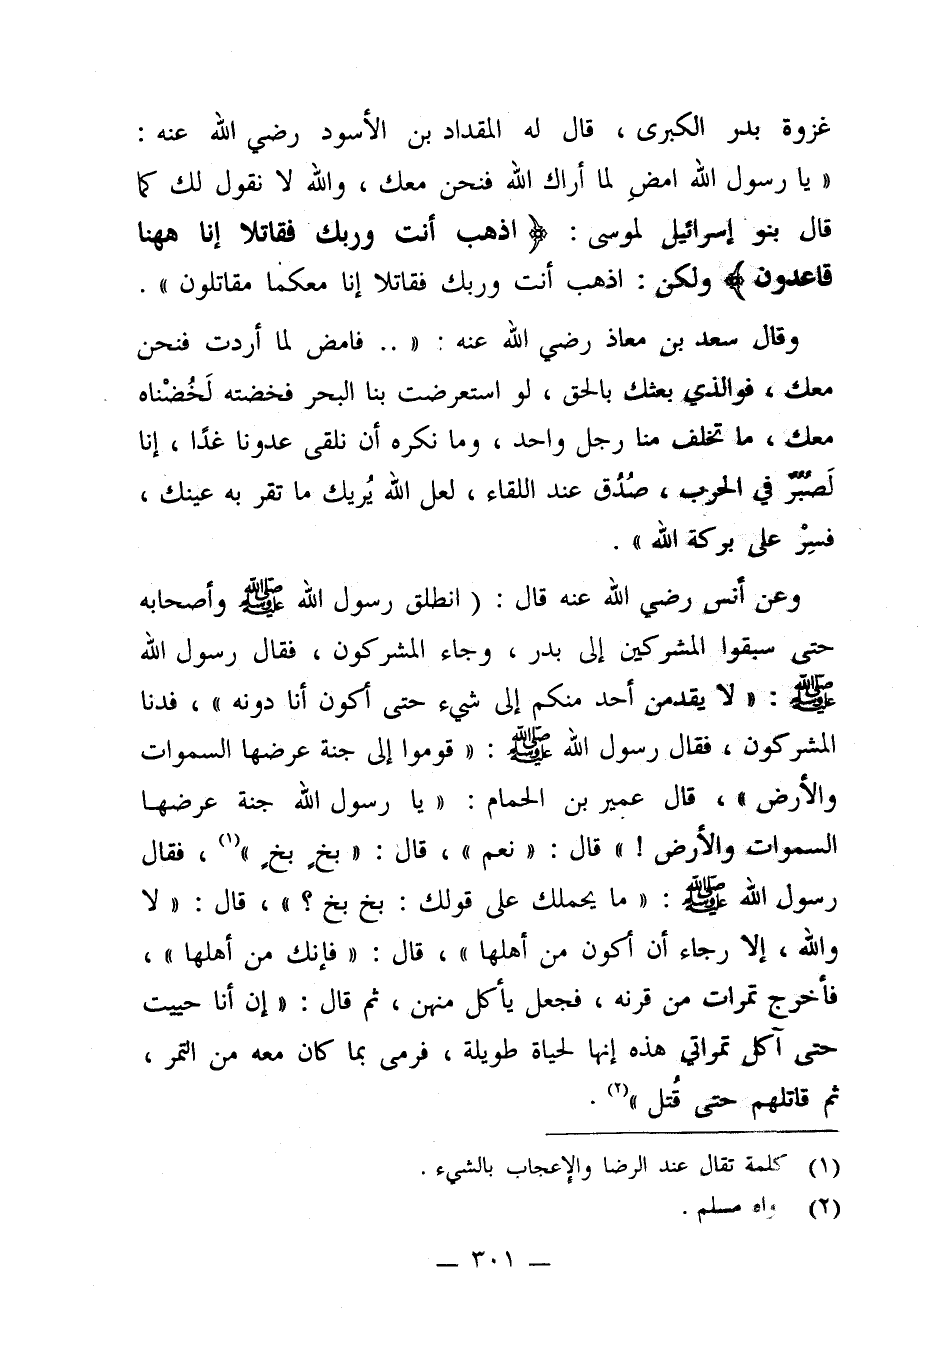 غزوة بدر الكبرى ، قال له المقداد بن الأسود رضي الله عنه :
« يا رسول الله امضِ لما أراك الله فنحن معك ، والله لا نقول لك كما
قال بنو إسرائيل لموسى : ﴿ اذهب أنت وربك فقاتلا إنا ههنا
قاعدون ﴾ ولكن : اذهب أنت وربك فقاتلا إنا معكما مقاتلون » .
وقال سعد بن معاذ رضي الله عنه : « .. فامض لما أردت فنحن
معك ، فوالذي بعثك بالحق ، لو استعرضت بنا البحر فخضته لَخُضْناه
معك ، ما تخلف منا رجل واحد ، وما نكره أن نلقى عدونا غدًا ، إنا
لَصُبُرٌ في الحرب ، صُدُق عند اللقاء ، لعل الله يُريك ما تقر به عينك ،
فسِرْ على بركة الله » .
وعن أنس رضي الله عنه قال : ( انطلق رسول الله ﷺ وأصحابه
حتى سبقوا المشركين إلى بدر ، وجاء المشركون ، فقال رسول الله
ﷺ : « لا يقدمن أحد منكم إلى شيء حتى أكون أنا دونه » ، فدنا
المشركون ، فقال رسول الله ﷺ : « قوموا إلى جنة عرضها السموات
والأرض » ، قال عمير بن الحمام : « يا رسول الله جنة عرضها
السموات والأرض ! » قال : « نعم » ، قال : « بخٍ بخٍ »(١) ، فقال
رسول الله ﷺ : « ما يحملك على قولك : بخ بخ ؟ » ، قال : « لا
والله ، إلا رجاء أن أكون من أهلها » ، قال : « فإنك من أهلها » ،
فأخرج تمرات من قرنه ، فجعل يأكل منهن ، ثم قال : « إن أنا حييت
حتى آكل تمراتي هذه إنها لحياة طويلة ، فرمى بما كان معه من التمر ،
ثم قاتلهم حتى قُتل »(٢) .
(١) كلمة تقال عند الرضا والإعجاب بالشيء .
(٢) واه مسلم .
— ٣٠١ —